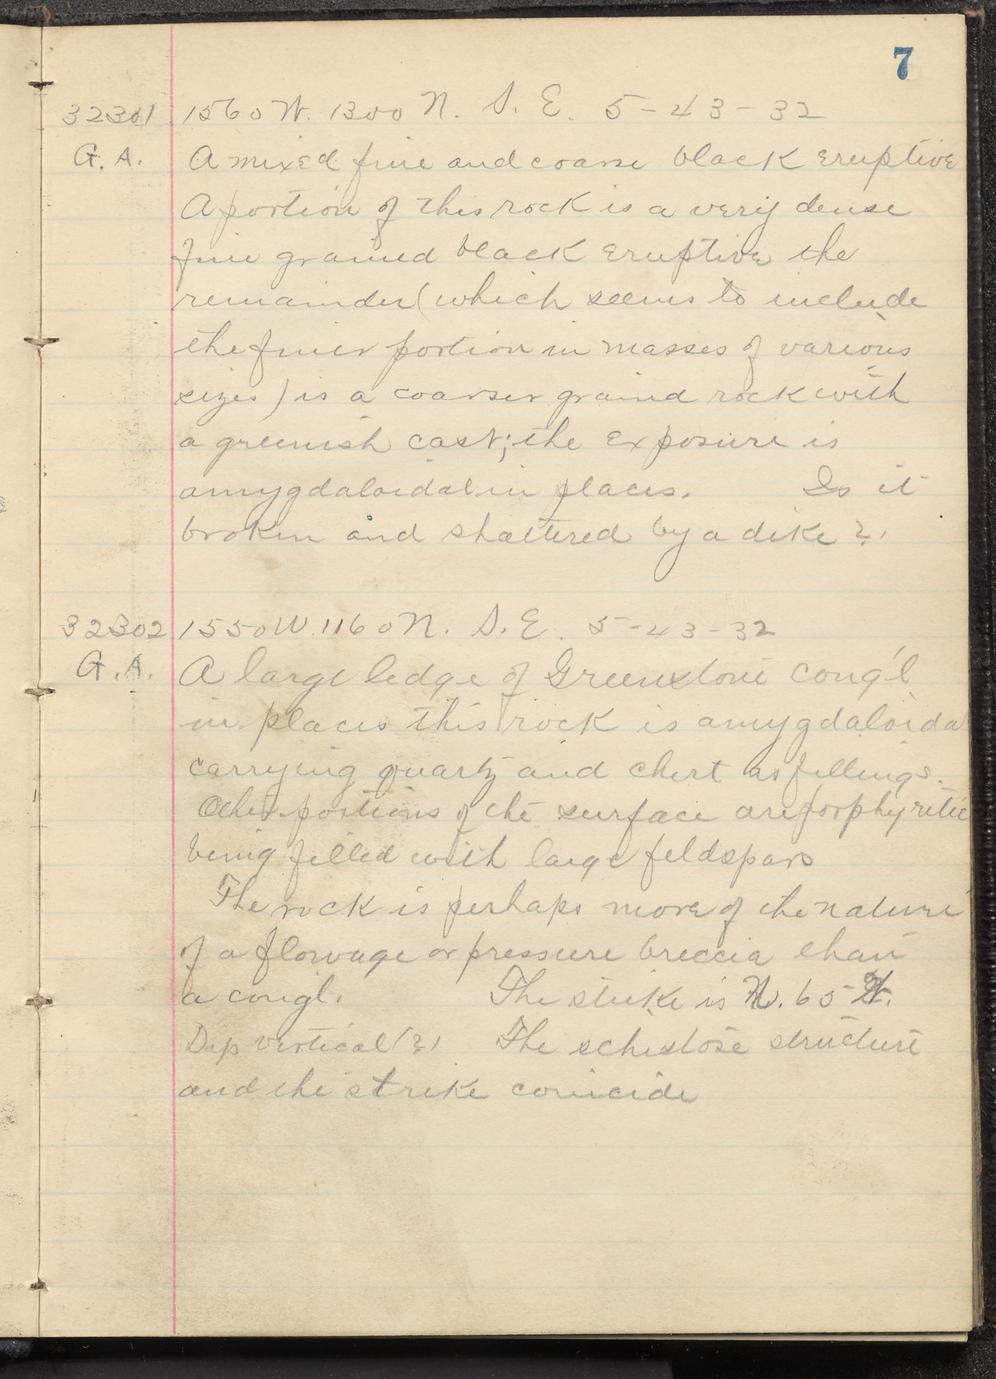 7
32301 1560 W. 1300 N. S. E. 5-43-32
G. A. A mixed fine and coarse black eruptive
A portion of this rock is a very dense
fine grained black eruptive the
remainder (which seems to include
the finer portion in masses of various
sizes) is a coarser graind rock with
a greenish cast; the exposure is
amygdaloidal in places. Is it
broken and shattered by a dike?
32302 1550 W. 1160 N. S. E. 5-43-32
G. A. A large ledge of Greenstone congl
in places this rock is amygdaloidal
carrying quartz and chert as fillings.
Other portions of the surface are porphyritic
being filled with large feldspars
The rock is perhaps more of the nature
of a flowage or pressure breccia than
a congl. The strike is N. 65 W.
Dip vertical (?) The schistose structure
and the strike coincide